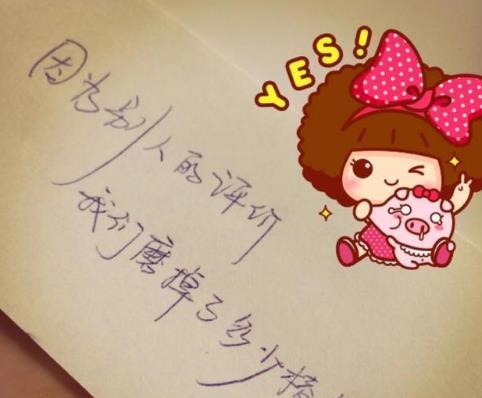 YES!
因为别人的评价
我们磨掉了多少